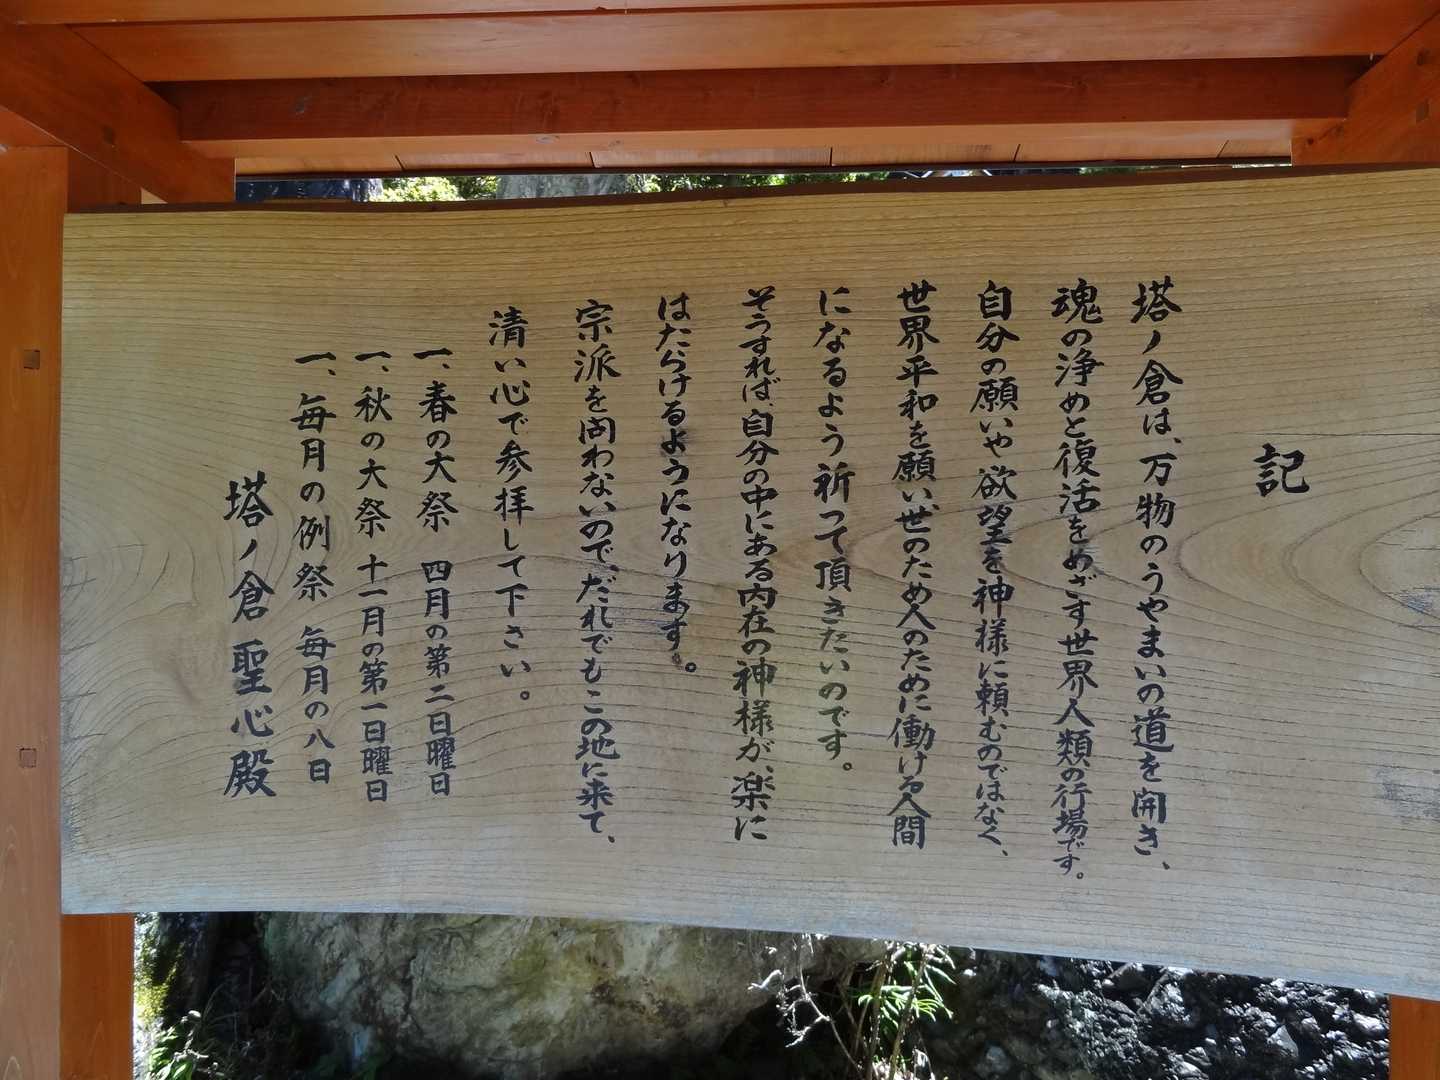 記
塔ノ倉は、万物のうやまいの道を開き、
魂の浄めと復活をめざす世界人類の行場です。
自分の願いや欲望を神様に頼むのではなく、
世界平和を願い、世のため人のために働ける人間
になるよう祈って頂きたいのです。
そうすれば、自分の中にある内在の神様が、楽に
はたらけるようになります。
宗派を問わないので、だれでもこの地に来て、
清い心で参拝して下さい。
一、春の大祭 四月の第二日曜日
一、秋の大祭 十一月の第一日曜日
一、毎月の例祭 毎月の八日
塔ノ倉聖心殿